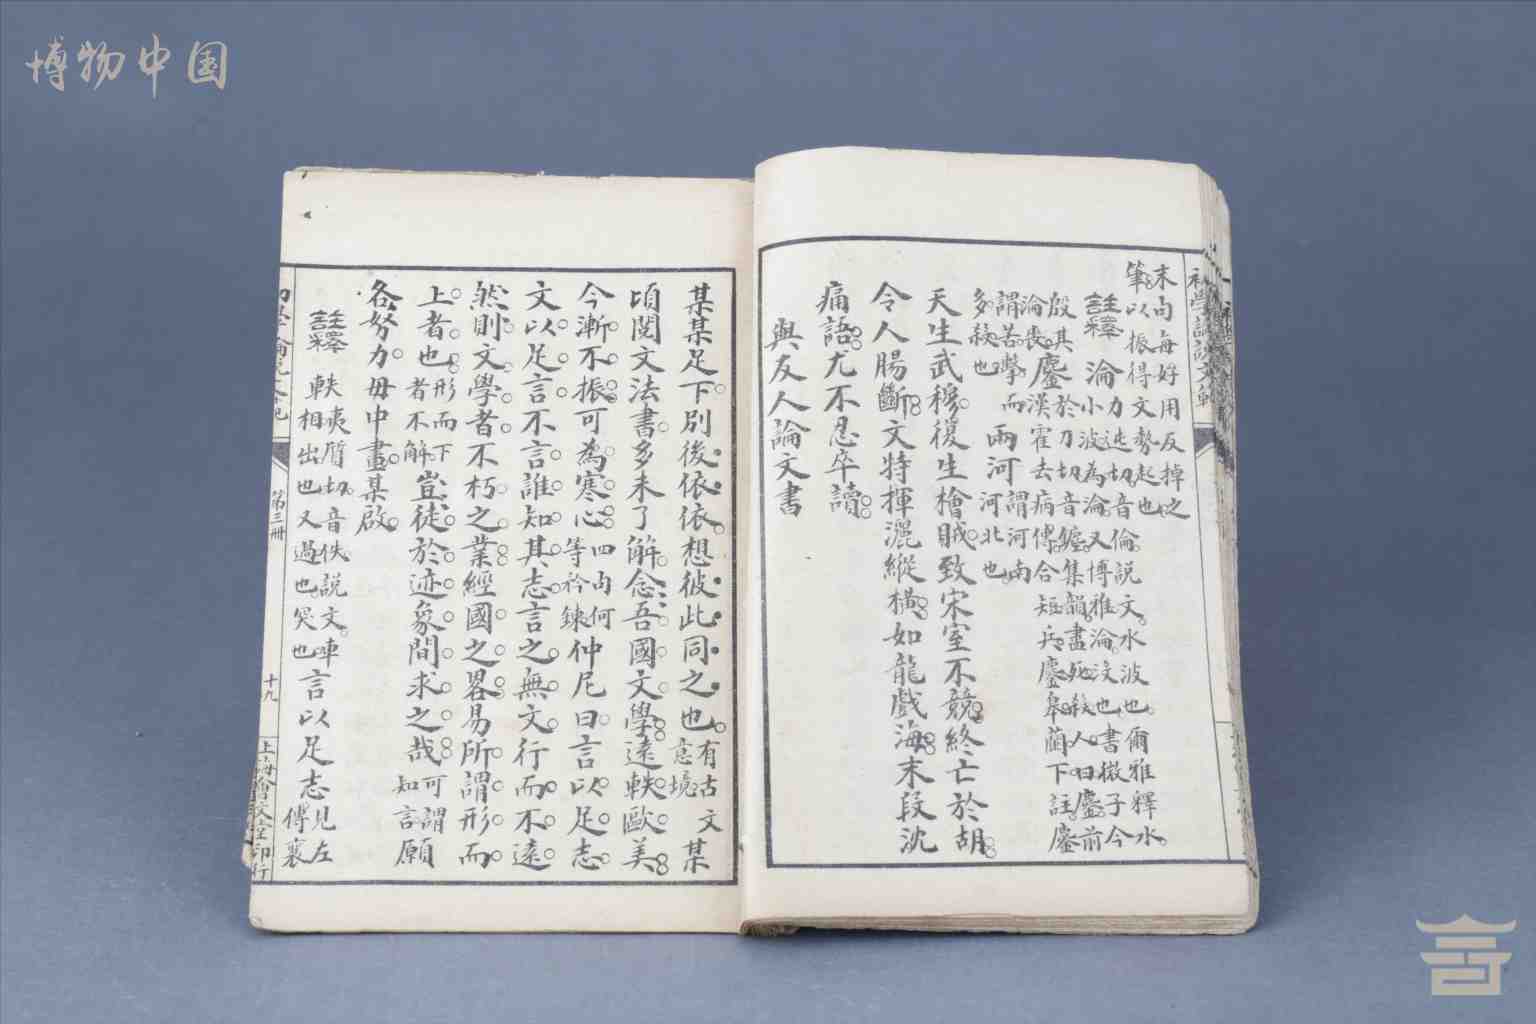 博物中国
末句每好用反掉之
筆以振得文勢起也
註釋
淪力迍切音倫說文水波也爾雅釋水
小波為淪又博雅淪沒也書微子今
殷其
淪喪
鏖於刀切音鑣集韻盡死殺人曰鏖前
漢霍去病傳合短兵鏖皋蘭下註鏖
謂苦擊而
多殺也
兩河謂河南
河北也
天生武穆復生檜賊致宋室不競終亡於胡
令人腸斷文特揮灑縱橫如龍戲海末段沈
痛語尤不忍卒讀
與友人論文書
某某足下別後依依想彼此同之也有古文
意境
某
頃閱文法書多未了解念吾國文學遠軼歐美
今漸不振可為寒心四句何
等衿鍊
仲尼曰言以足志
文以足言不言誰知其志言之無文行而不遠
然則文學者不朽之業經國之畧易所謂形而
上者也形而下
者不解
豈徒於迹象間求之哉可謂
知言
願
各努力毋中畫某啟
註釋
軼夷質切音佚說文車
相出也又過也突也
言以足志見左
傳襄
第三冊
十九
上海會文堂印行